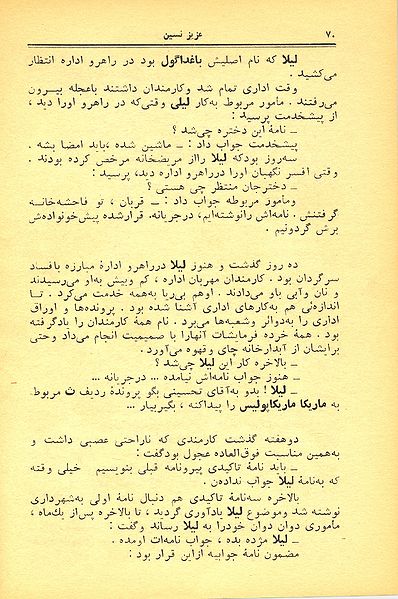 ۷۰ عزیز نسین
لیلا که نام اصلیش باغداگول بود در راهرو اداره انتظار
می‌کشید .
وقت اداری تمام شد وکارمندان داشتند باعجله بیرون
می‌رفتند . مأمور مربوط به‌کار لیلی وقتی‌که در راهرو اورا دید ،
از پیشخدمت پرسید :
ــ نامهٔ این دختره چی‌شد ؟
پیشخدمت جواب داد : ــ ماشین شده ،باید امضا بشه .
سه‌روز بودکه لیلا رااز مریضخانه مرخص کرده بودند .
وقتی افسر نگهبان اورا درراهرو اداره دید، پرسید :
ــ دخترجان منتظر چی هستی ؟
ومأمور مربوطه جواب داد : ــ قربان ، تو فاحشه‌خانه
گرفتنش . نامه‌اش رانوشته‌ایم، درجریانه. قرارشده پیش‌خونواده‌ش
برش گردونیم .
ده روز گذشت و هنوز لیلا درراهرو ادارهٔ مبارزه بافساد
سرگردان بود . کارمندان مهربان اداره ، کم وبیش به‌او می‌رسیدند
و نان وآبی باو می‌دادند . اوهم بی‌ریا به‌همه خدمت می‌کرد . تا
اندازه‌ئی هم به‌کارهای اداری آشنا شده بود . پرونده‌ها و اوراق
اداری را به‌دوائر وشعبه‌ها می‌برد . نام همهٔ کارمندان را یادگرفته
بود . همهٔ خرده فرمایشات آنهارا با صمیمیت انجام می‌داد وحتی
برایشان از آبدارخانه چای و قهوه می‌آورد .
ــ بالاخره کار این لیلا چی‌شد ؟
ــ هنوز جواب نامه‌اش نیامده ... درجریانه ...
ــ لیلا ! بدو به‌آقای تحسینی بگو پروندهٔ ردیف ث مربوط
به ماریکا ماریکاپولیس را پیداکنه ، بگیربیار ...
دوهفته گذشت کارمندی که ناراحتی عصبی داشت و
به‌همین مناسبت فوق‌العاده عجول بودگفت :
ــ باید نامهٔ تاکیدی پیرونامه قبلی بنویسیم خیلی وقته
که به‌نامهٔ لیلا جواب نداده‌ن .
بالاخره سه‌نامهٔ تاکیدی هم دنبال نامهٔ اولی به‌شهرداری
نوشته شد وموضوع لیلا یادآوری گردید ، تا بالاخره پس‌از یك‌ماه ،
مأموری دوان دوان خودرا به لیلا رساند وگفت :
ــ لیلا مژده بده ، جواب نامه‌ات اومده .
مضمون نامهٔ جوابیه ازاین قرار بود :